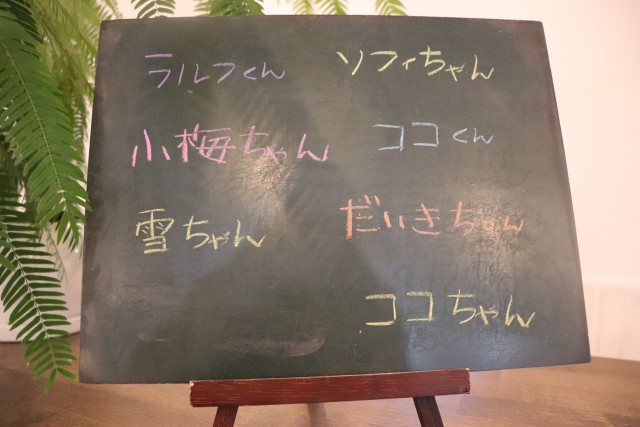 ラルフくん
ソフィちゃん
小梅ちゃん
ココくん
雪ちゃん
だいきちゃん
ココちゃん